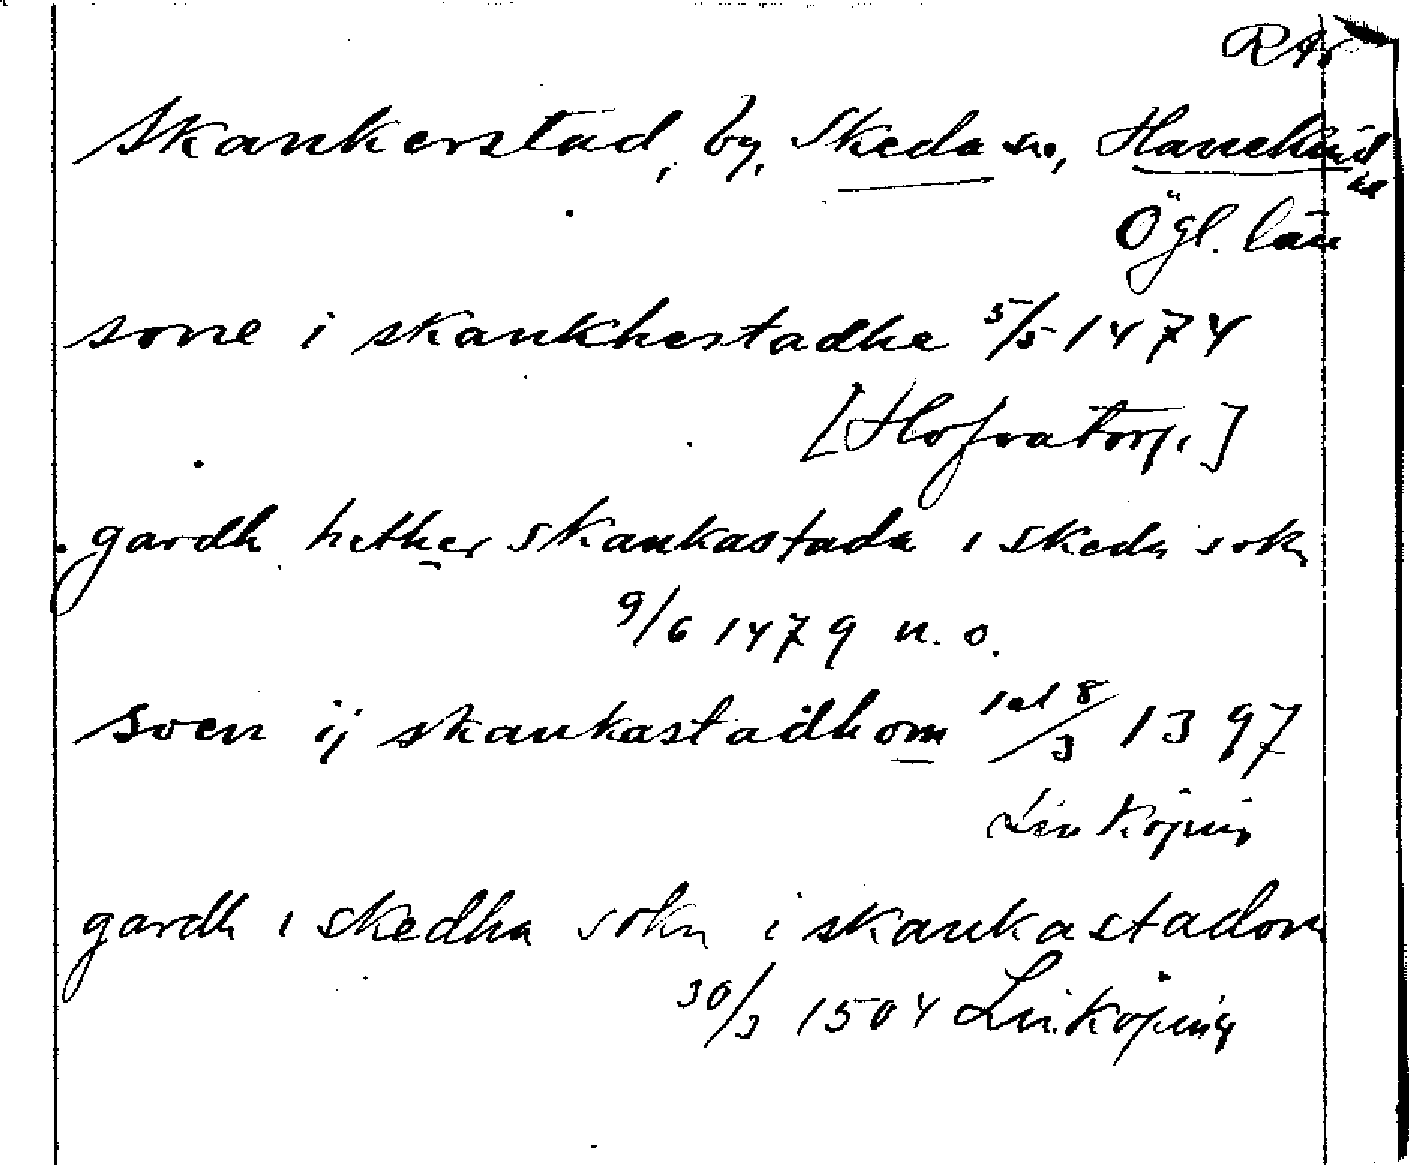 RAp
Skankerstad, by, Skeda sn, Hanekind
hd
Ögl. län
sone i skankhestadhe 5/5 1474
[Hofvatorp.]
gardh hether skankastada i skeda sokn
9/6 1479 n. o.
soen ij skankastadhom 1 el 8/3 1397
Linköping
gardh i skedha sokn i skankastadom
30/3 1504 Linköping